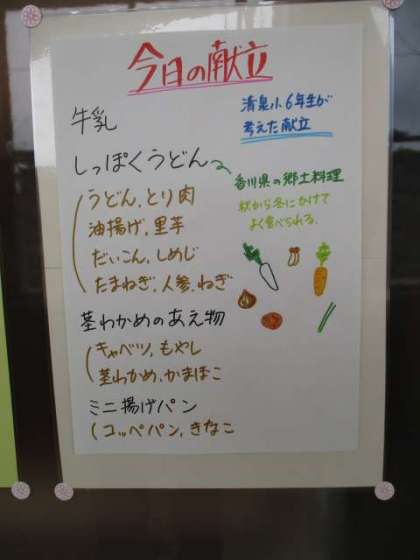 今日の献立
清泉小6年生が
考えた献立
牛乳
しっぽくうどん
香川県の郷土料理
秋から冬にかけて
よく食べられる。
うどん、とり肉
油揚げ、里芋
だいこん、しめじ
たまねぎ、人参、ねぎ
茎わかめのあえ物
キャベツ、もやし
茎わかめ、かまぼこ
ミニ揚げパン
コッペパン、きなこ